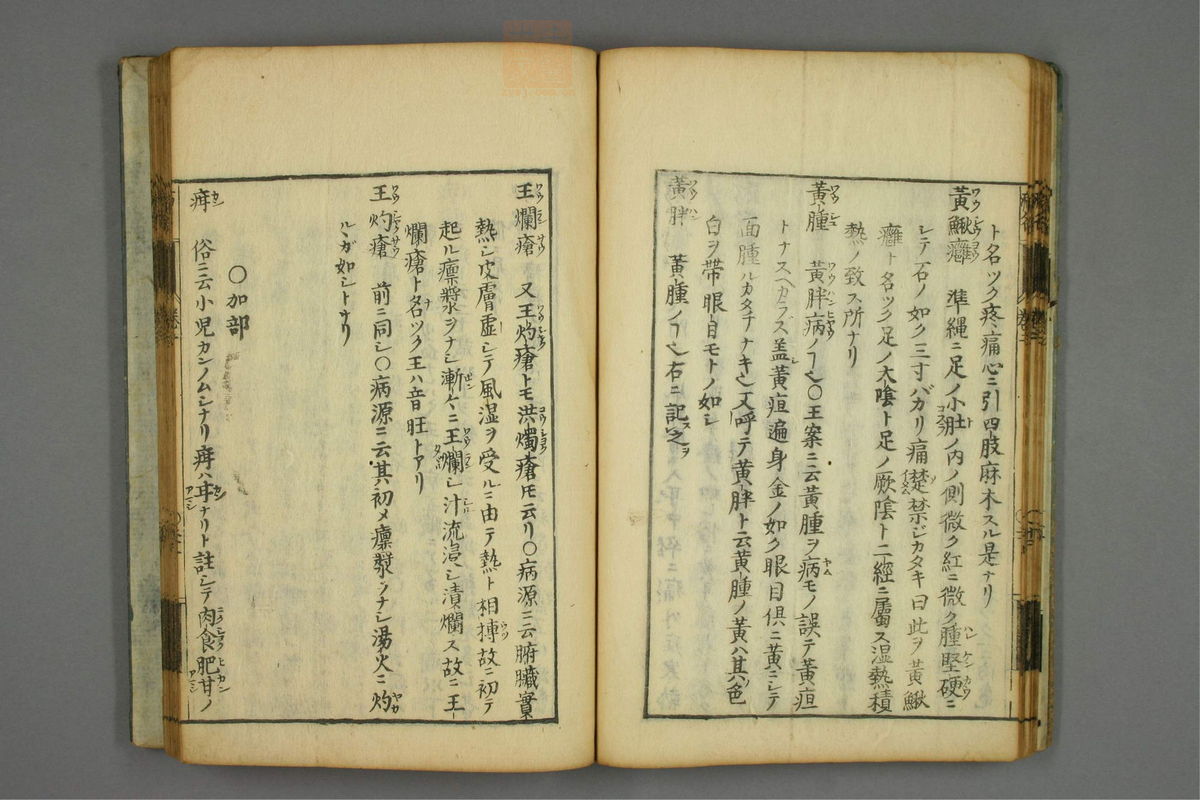 ト名ツク疼痛心ニ引四肢麻木スル是ナリ
黄鰍癰 準縄ニ足ノ小肚ノ内ノ側微ク紅ニ微ク腫堅硬ニ
シテ石ノ如ク三寸バカリ痛楚禁ジカタキ曰此ヲ黄鰍
癰ト名ツク足ノ大陰ト足ノ厥陰ト二經ニ属ス湿熱積
熱ノ致ス所ナリ
黄腫 黄胖病ノヿ也〇王案ニ云黄腫ヲ病モノ誤テ黄疸
トナスヘカラズ盖黄疸遍身金ノ如ク眼目倶ニ黄ニシテ
面腫ルカタチナキ也又呼テ黄胖ト云黄腫ノ黄ハ其色
白ヲ帯眼目モトノ如シ
黄胖 黄腫ノヿ也右ニ記之
王爛瘡 又王灼瘡トモ洪燭瘡トモ云リ〇病源ニ云腑臓實
熱シ皮膚虚シテ風湿ヲ受ルニ由テ熱ト相摶故ニ初テ
起ル瘭漿ヲナシ漸々ニ王爛シ汁流浸シ潰爛ス故ニ王
爛瘡ト名ツク王ハ音旺トアリ
王灼瘡 前ニ同シ〇病源ニ云其初メ瘭漿ヲナシ湯火ニ灼
ルヽガ如シトナリ
〇加部
疳 俗ニ云小児カンノムシナリ疳ハ甘ナリト註シテ肉食肥甘ノ